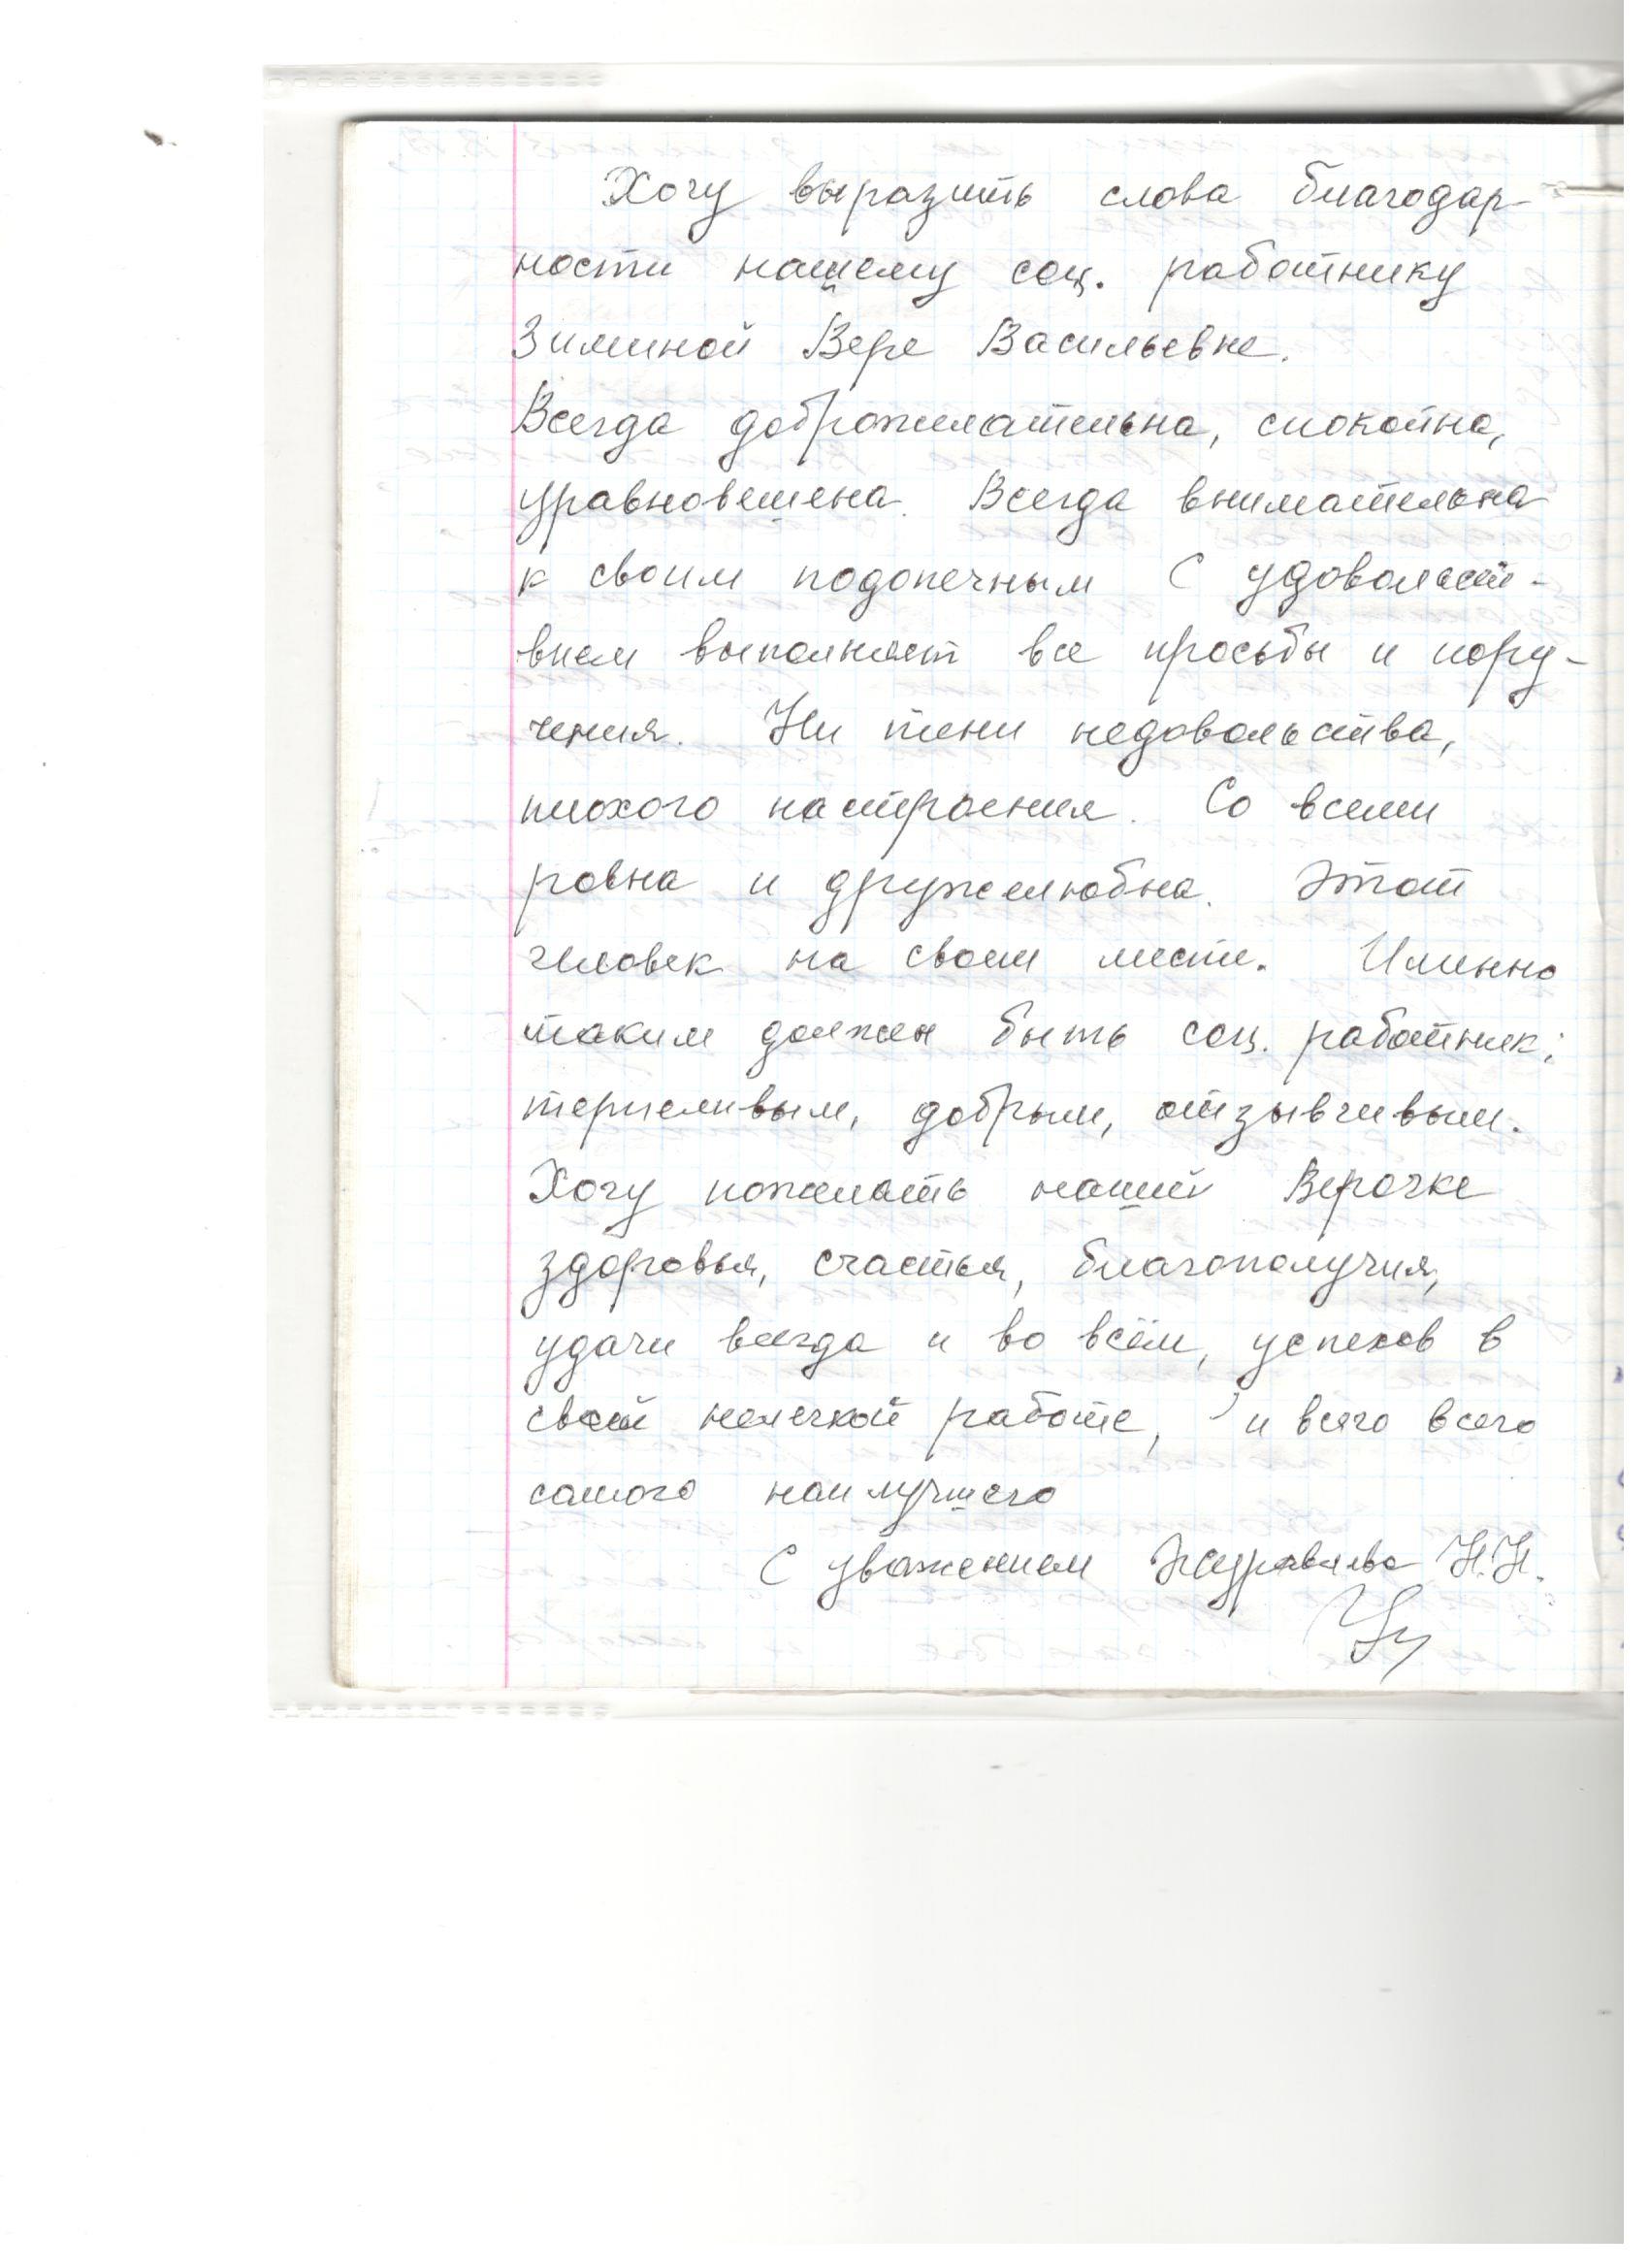 Хочу выразить слова благодар-
ности нашему соц. работнику
Зиминой Вере Васильевне.
Всегда доброжелательна, спокойна,
уравновешена. Всегда внимательна
к своим подопечным С удовольст-
вием выполняет все просьбы и пору-
чения. Ни тени недовольства,
плохого настроения. Со всеми
ровна и дружелюбна. Этот
человек на своем месте. Именно
таким должен быть соц. работник:
терпеливым, добрым, отзывчивым.
Хочу пожелать нашей Верочке
здоровья, счастья, благополучия,
удачи всегда и во всём, успехов в
своей нелегкой работе, и всего всего
самого наилучшего
С уважением Журавлева Н.Н.